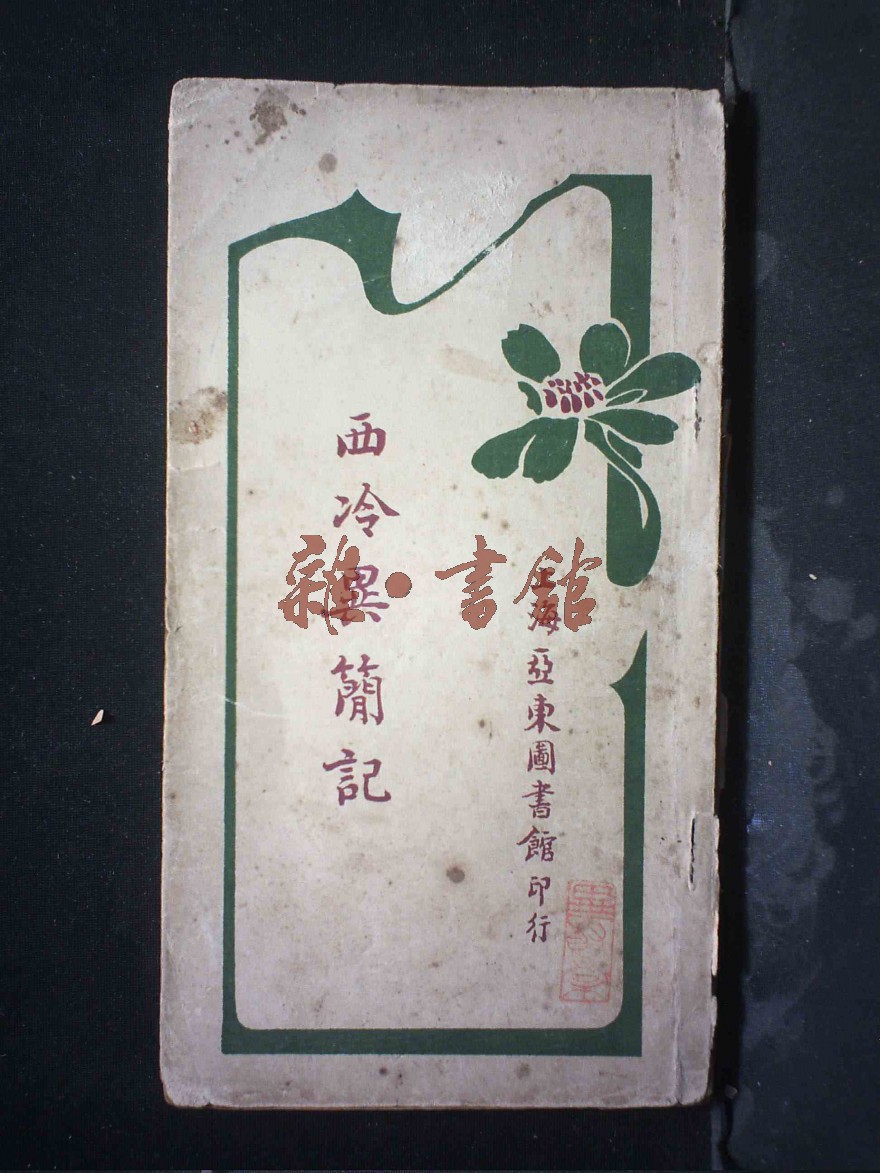 西冷異簡記
上海亞東圖書館印行
雜·書館